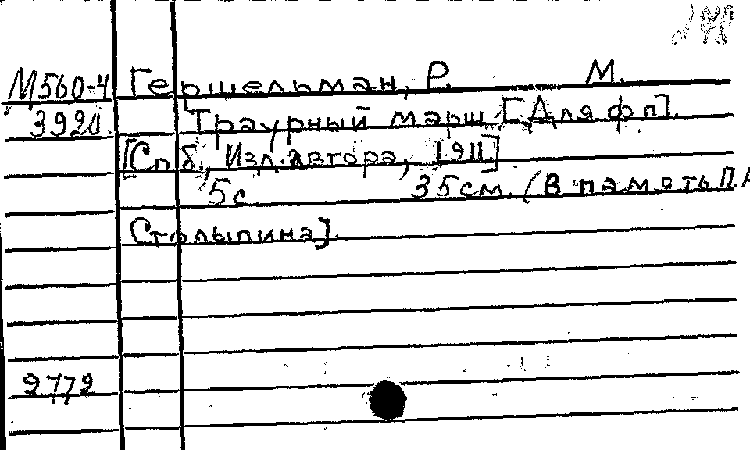 М560-4 Гершельман, Р. М.
3920 Траурный марш [Для ф.п].
[Спб, Изд. автора, 1911]
5с 35см. (В память П.А
Столыпина].
2772